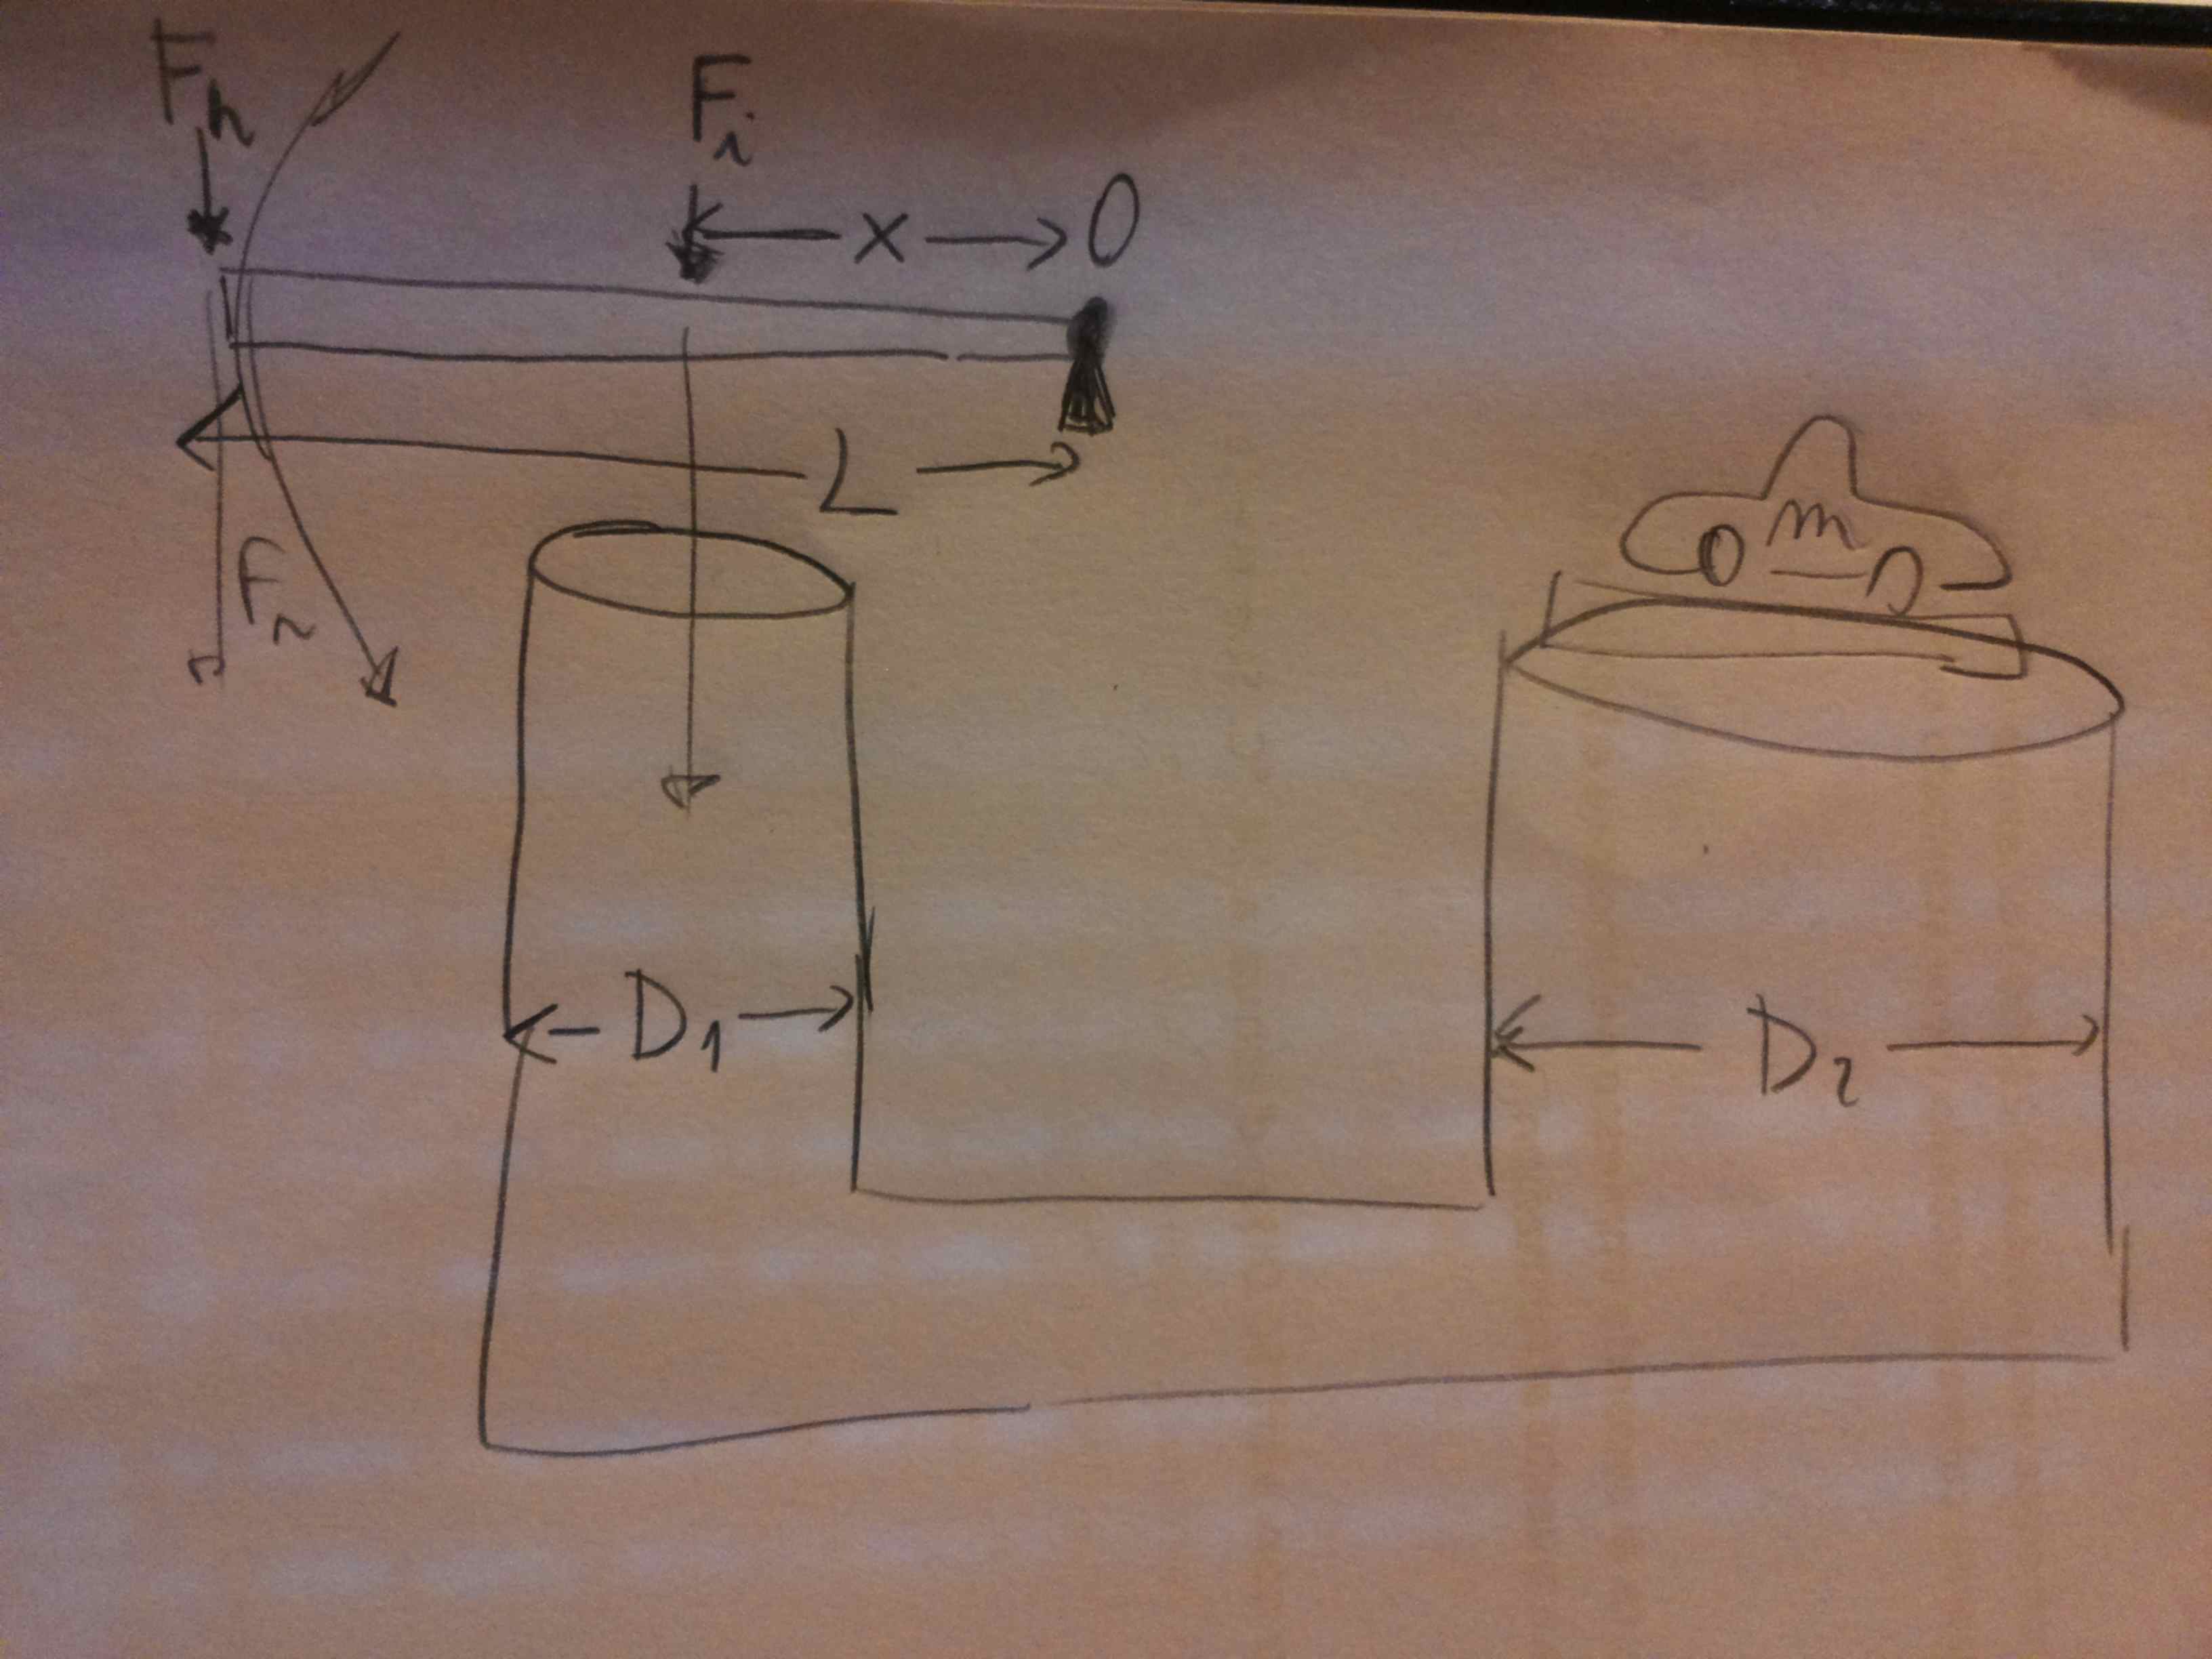 Fh
Fi
x
O
L
Fr
m
D1
D2